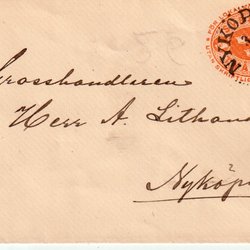 NYKÖP
Grosshandleren
Herr A. Lithan
Nyköp